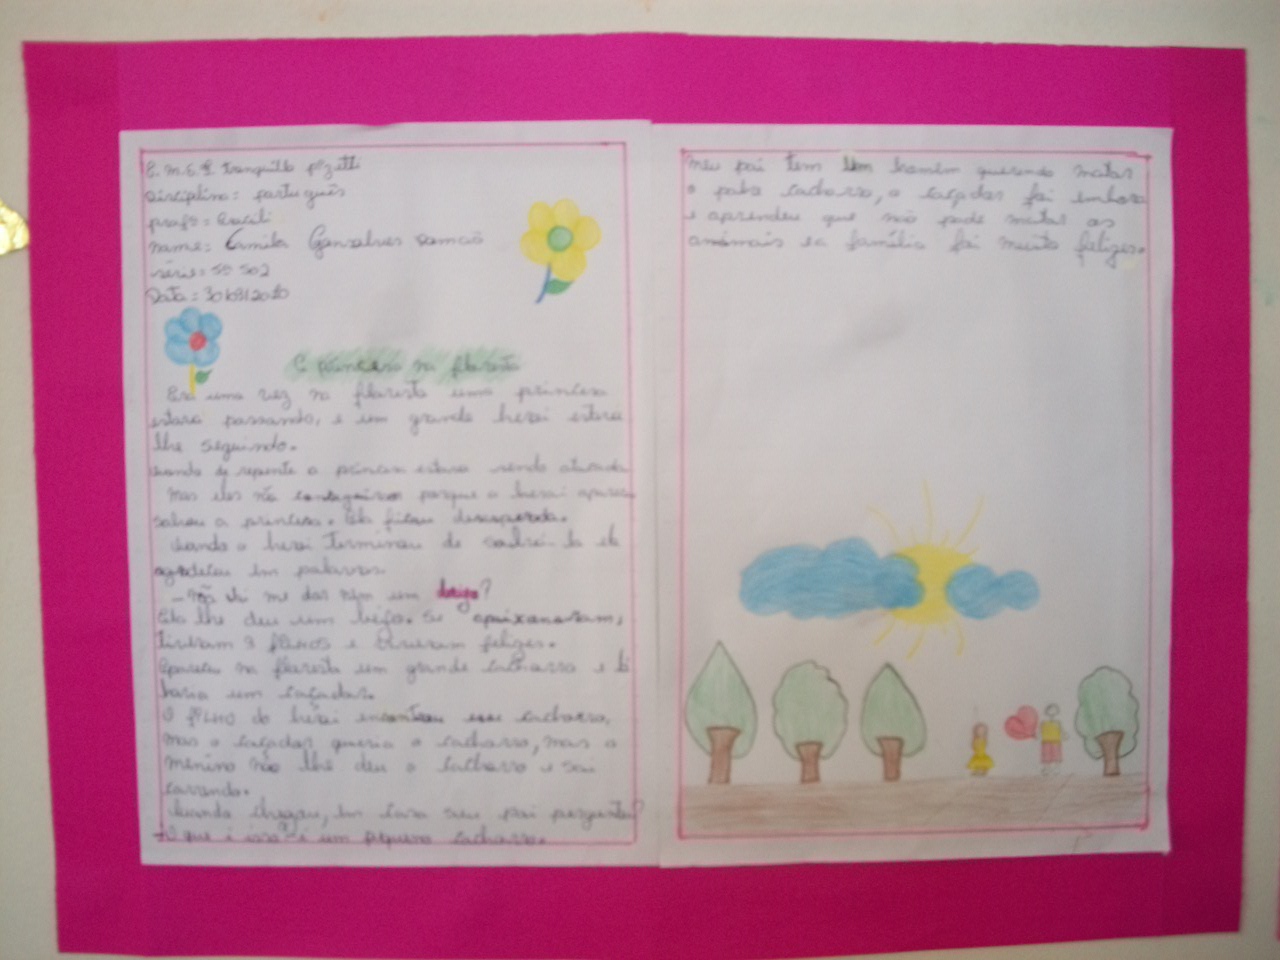 E. M. E. F. tranquillo pizetti
Disciplina: português
profº:
nome: Camila Gonsalves Ramão
série: 5º 502
Data: 30
A princesa na floresta
Era uma vez na floresta uma princesa
estava passando, e um grande herói estava
lhe seguindo.
Quando de repente a princesa estava sendo atacada
Mas eles não porque o herói
salvou a princesa. Ela ficou desesperada.
Quando o herói terminou de salva-la ela
agradeceu em palavras.
- Não vai me dar nem um beijo?
Ela lhe deu um beijo. Se apaixonaram,
tiveram filhos e viveram felizes.
Apareceu na floresta um grande cachorro e lá
havia um caçador.
O filho do herói encontrou esse cachorro,
mas o caçador queria o cachorro, mas o
menino não lhe deu o cachorro e saiu
correndo.
Quando chegou, em casa seu pai pergunta?
- O que é isso? é um pequeno cachorro.
Meu pai tem um homem querendo matar
o pobre cachorro, o caçador foi embora
e aprendeu que não pode matar os
animais e a família foi muito felizes.